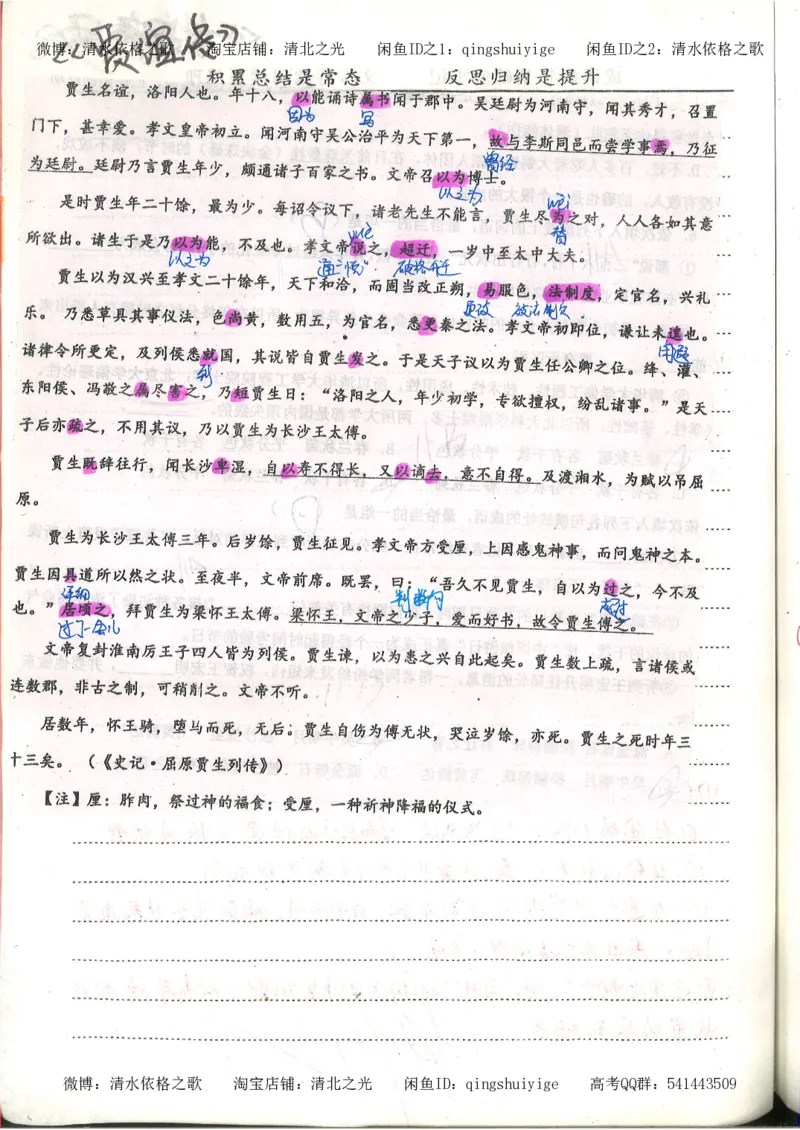 微博：清水依格之歌 淘宝店铺：清北之光 闲鱼ID之1：qingshuiyige 闲鱼ID之2：清水依格之歌
《贾谊传》
积累总结是常态 反思归纳是提升
贾生名谊，洛阳人也。年十八，以能诵诗属书闻于郡中。吴廷尉为河南守，闻其秀才，召置
因为 写
门下，甚幸爱。孝文皇帝初立。闻河南守吴公治平为天下第一，故与李斯同邑而尝学事焉，乃征
曾经
为廷尉。廷尉乃言贾生年少，颇通诸子百家之书。文帝召以为博士。
以之为
是时贾生年二十馀，最为少。每诏令议下，诸老先生不能言，贾生尽为之对，人人各如其意
替
所欲出。诸生于是乃以为能，不及也。孝文帝说之，超迁，一岁中至太中大夫。
以之为 通“悦” 破格升迁
贾生以为汉兴至孝文二十馀年，天下和洽，而固当改正朔，易服色，法制度，定官名，兴礼
更改
乐。 乃悉草具其事仪法，色尚黄，数用五，为官名，悉更秦之法。孝文帝初即位，谦让未遑也。
诸律令所更定，及列侯悉就国，其说皆自贾生发之。于是天子议以为贾生任公卿之位。绛、灌、
到
东阳侯、冯敬之属尽害之，乃短贾生曰：“洛阳之人，年少初学，专欲擅权，纷乱诸事。”是天
子后亦疏之，不用其议，乃以贾生为长沙王太傅。
贾生既辞往行，闻长沙卑湿，自以寿不得长，又以谪去，意不自得。及渡湘水，为赋以吊屈
原。
贾生为长沙王太傅三年。后岁馀，贾生征见。孝文帝方受厘，上因感鬼神事，而问鬼神之本。
贾生因具道所以然之状。至夜半，文帝前席。既罢，曰：“吾久不见贾生，自以为过之，今不及
详细 超过
也。”居顷之，拜贾生为梁怀王太傅。梁怀王，文帝之少子，爱而好书，故令贾生傅之。
过了一会儿
文帝复封淮南厉王子四人皆为列侯。贾生谏，以为患之兴自此起矣。贾生数上疏，言诸侯或
连数郡，非古之制，可稍削之。文帝不听。
居数年，怀王骑，堕马而死，无后。贾生自伤为傅无状，哭泣岁馀，亦死。贾生之死时年三
十三矣。（《史记·屈原贾生列传》）
【注】厘：胙肉，祭过神的福食；受厘，一种祈神降福的仪式。
微博：清水依格之歌 淘宝店铺：清北之光 闲鱼ID：qingshuiyige 高考QQ群：541443509